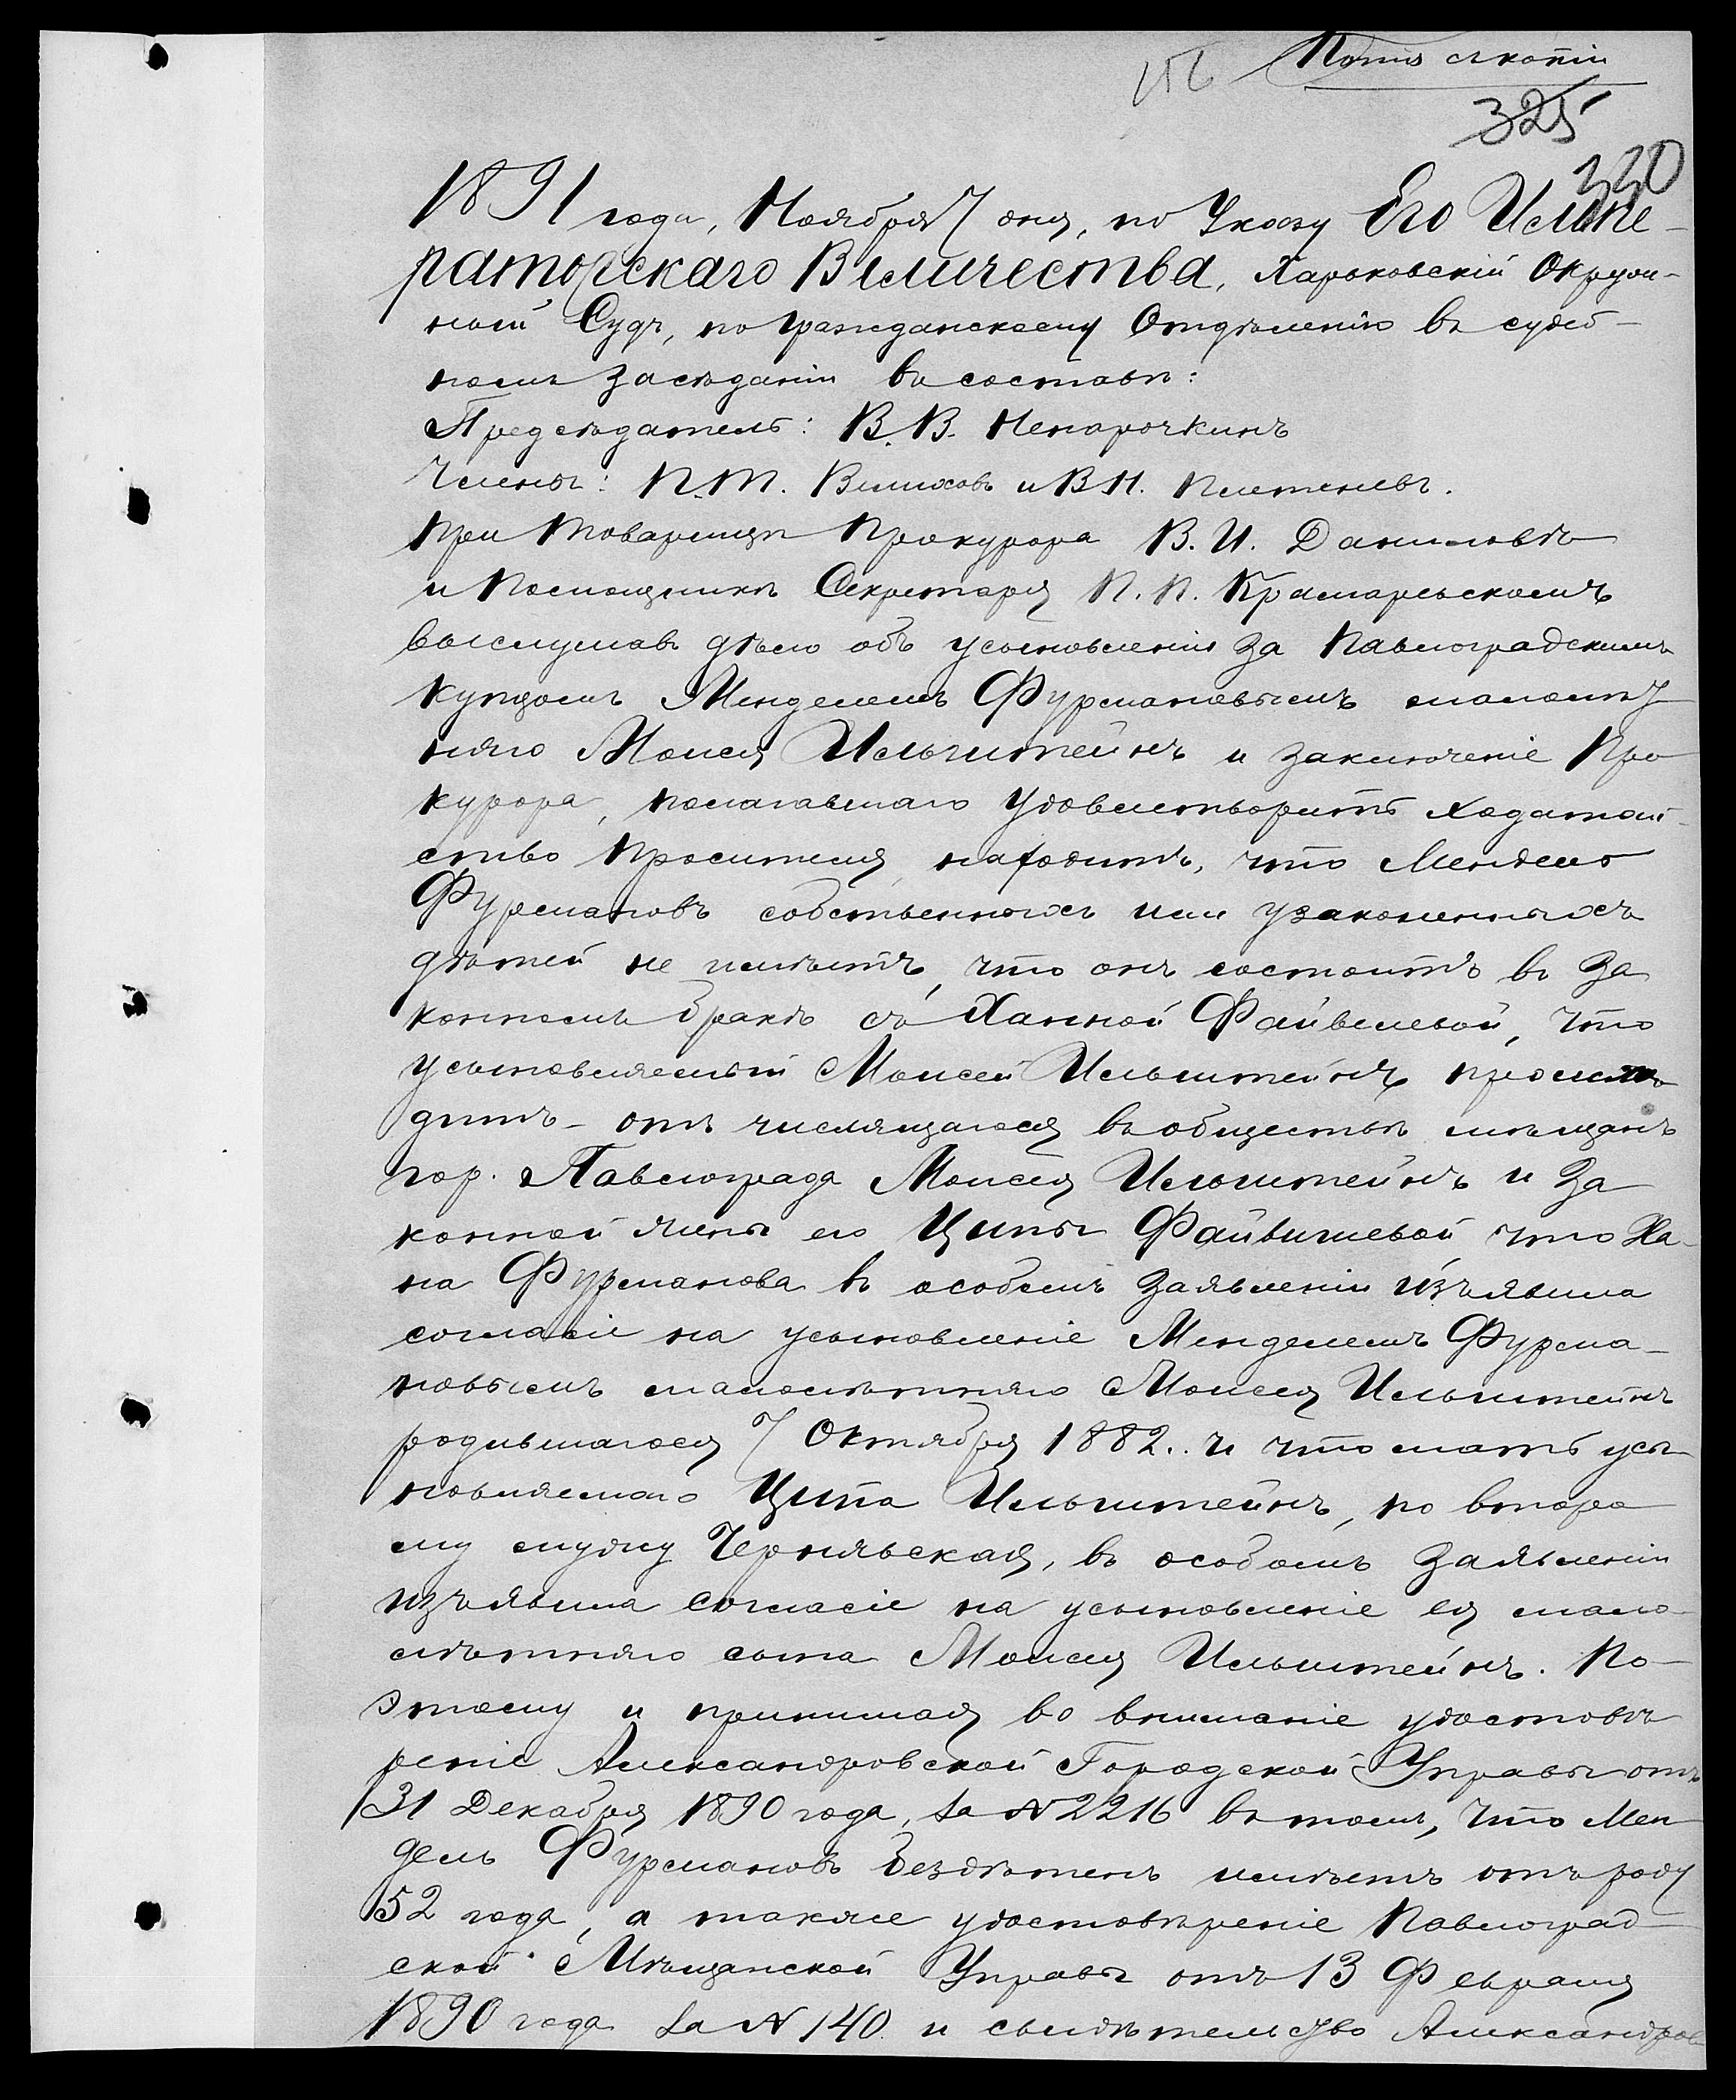 Копія съ копіи
156
325
330
1891 года, Ноября 7 дня, по Указу Его Импе-
раторскаго Величества, Харьковскій Окруж-
ный Судъ, по Гражданскому Отдѣленію въ судеб-
номъ засѣданіи въ составѣ:
Предсѣдатель: В. В. Ненарочкинъ
Члены: П. Т. Витховъ и В. Н. Плетеневъ.
При Товарищѣ Прокурора В. И. Даниловѣ
и Помощникѣ Секретаря П. П. Крамаревскомъ
выслушавъ дѣло объ усыновленіи за Павлоградскимъ
Купцомъ Менделемъ Фурмановымъ малолѣт
няго Моисея Ильштейнъ и заключеніе Про
курора, полагавшаго удовлетворить ходатай-
ство просителя, находитъ, что Мендель
Фурмановъ собственныхъ или узаконенныхъ
дѣтей не имѣетъ, что онъ состоитъ въ за
конномъ бракѣ съ Ханной Файвелевой, что
усыновляемый Моисей Ильштейнъ происхо
дитъ - отъ числящагося въ обществѣ мѣщанъ
гор. Павлограда Моисея Ильштейнъ и за
конной жены его Ципы Файвишевой, что Ха-
на Фурманова въ особомъ заявленіи изъявила
согласіе на усыновленіе Менделемъ Фурма-
новымъ малолѣтняго Моисея Ильштейнъ
родившагося 7 Октября 1882. г. и что мать усы
новляемаго Ципа Ильштейнъ, по второ
му мужу Чернявская, въ особомъ заявленіи
изъявила согласіе на усыновленіе ея мало-
лѣтняго сына Моисея Ильштейнъ. По-
этому и принимая во вниманіе удостовѣ
реніе Александровской Городской Управы отъ
31 Декабря 1890 года, за № 2216 въ томъ, что Мен
дель Фурмановъ бездѣтенъ имѣетъ отъ роду
52 года, а также удостовѣреніе Павлоград
ской Мѣщанской Управы отъ 13 Февраля
1890 года за № 140 и свидѣтельство Александров